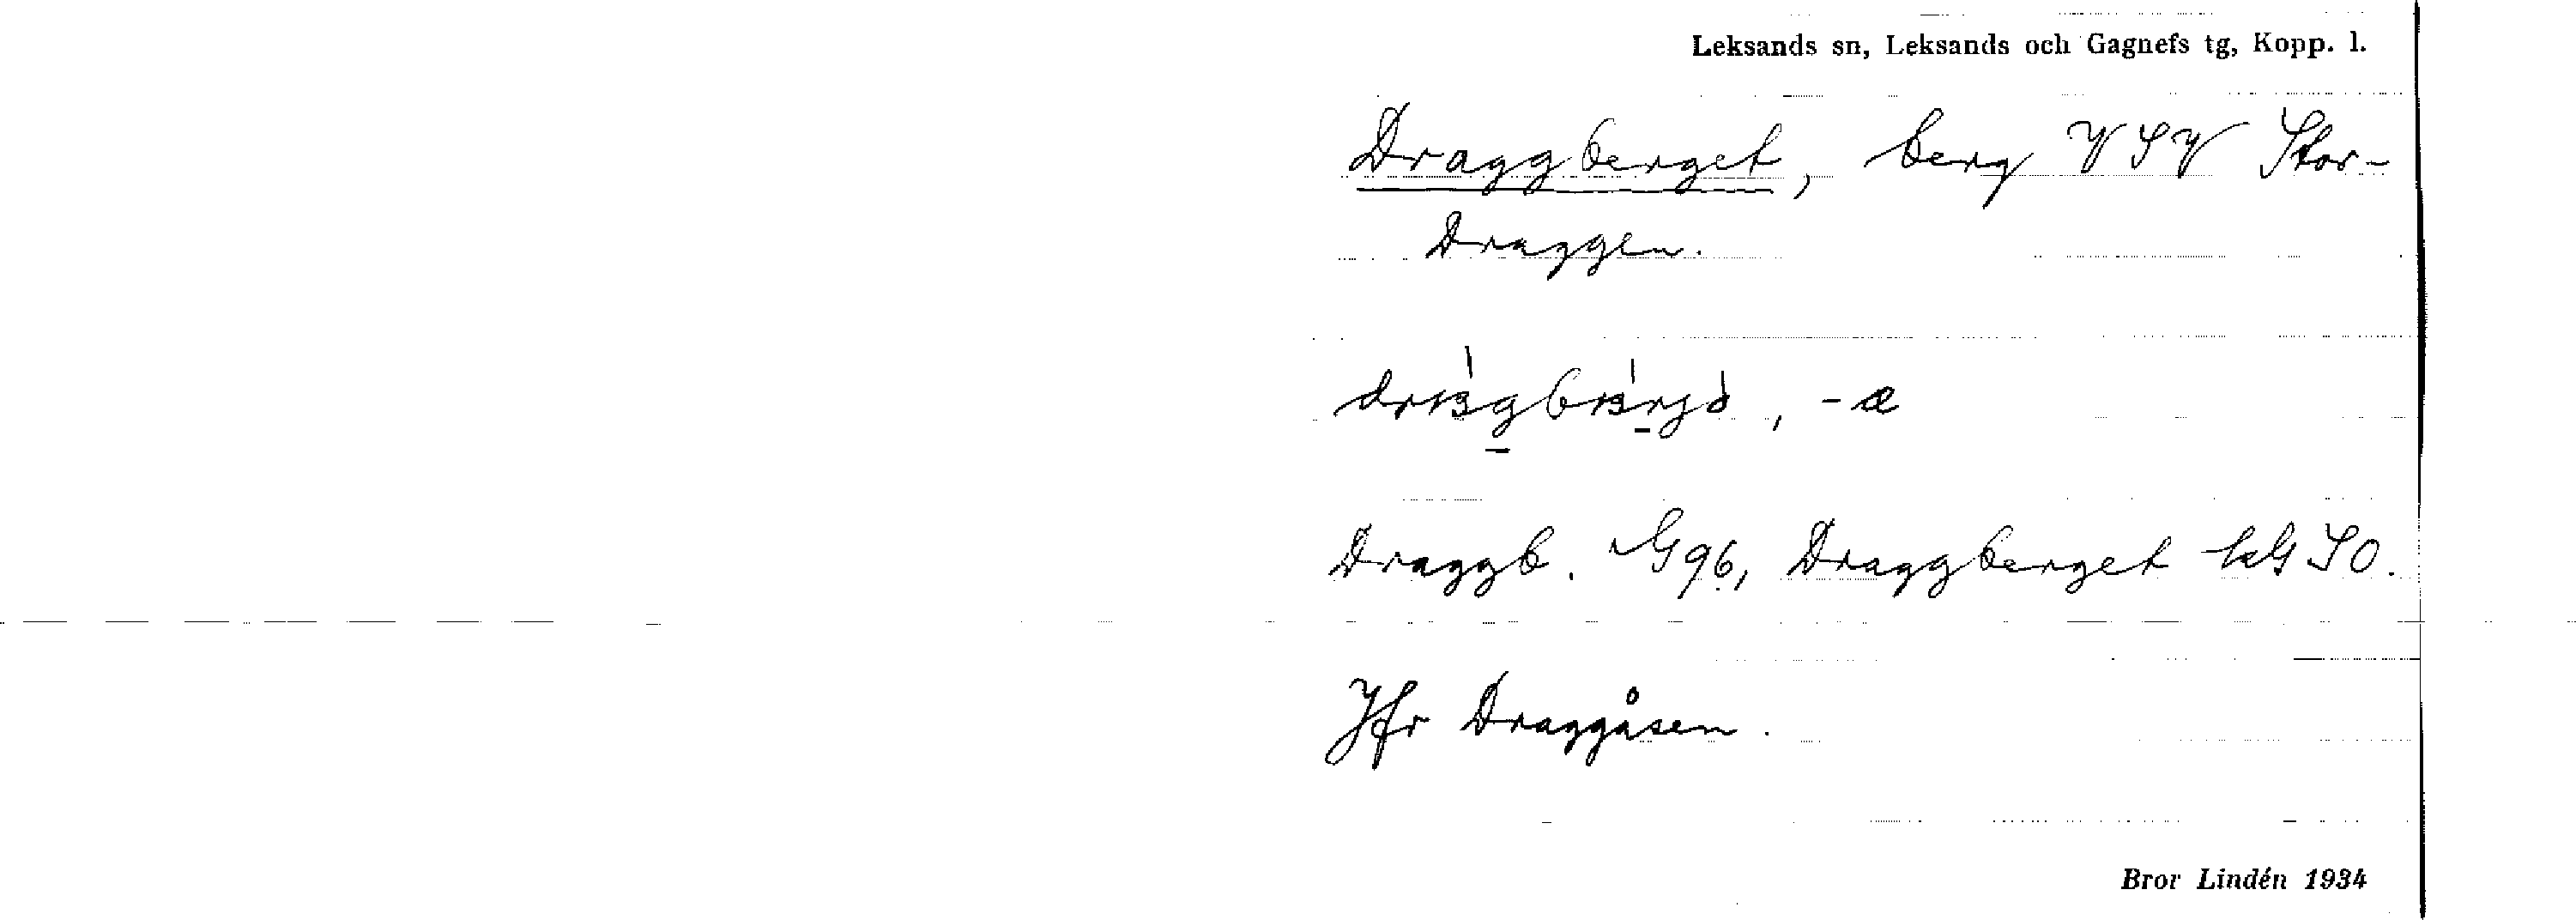 Leksands sn, Leksands och Gagnefs tg, Kopp. l.
Draggberget, berg VSV Stor-
Draggen.
, -a
Draggb. G96, Draggberget SO.
Jfr Draggåsen.
Bror Lindén 1934